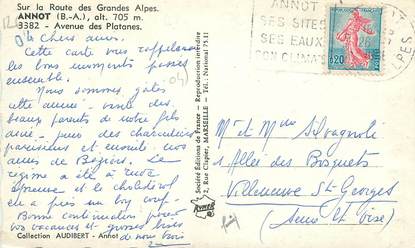 Sur la Route des Grandes Alpes.
ANNOT (B.-A.), alt. 705 m.
3382 - Avenue des Platanes.
Chers amis,
Cette carte vous rappellera
les bons moments passés
ensemble.
Nous sommes gâtés
cette année - vente des
beaux parents de notre fils
aîné - puis des charcutiers
parisiens et ensuite nos
amis de Béziers. Le
régime a été à rude
épreuve et le cholestérol
en a pris un bon coup.
Bonne continuation pour
vos vacances et grosses bises
de nous trois
Collection AUDIBERT - Annot
Société Éditions de France - Reproduction interdite
72, Rue Clapier, MARSEILLE - Tél.: National 75.11
ANNOT
SES SITES
SES EAUX
SON CLIMAT
0,20
M et Mme Salvagnole
1 Allée des Bosquets
Villeneuve St-Georges
(Seine et Oise)